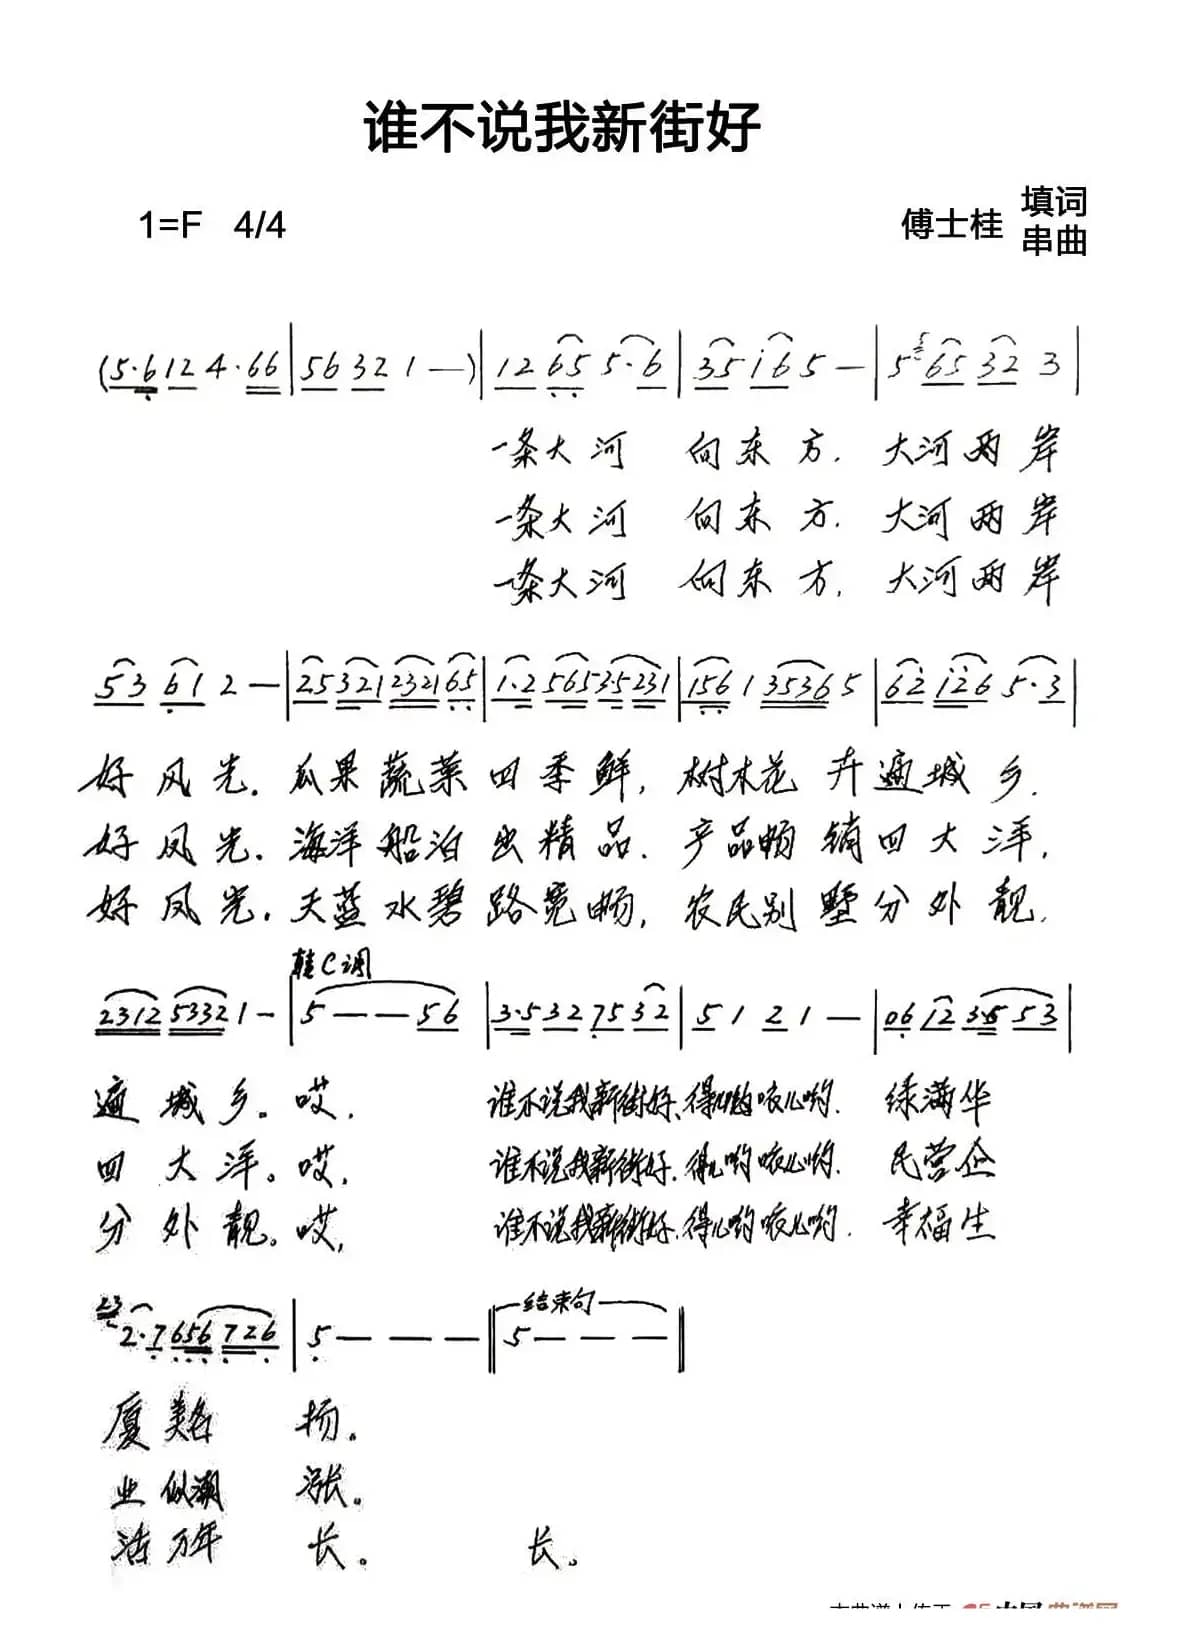 谁不说我新街好
1=F 4/4
傅士桂 填词
串曲
(5·6 12 4·66 | 56 32 1 —) | 12 65 5·6 | 35 i6 5 — | 5 65 32 3 |
一条大河 向东方. 大河两岸
一条大河 向东方. 大河两岸
一条大河 向东方. 大河两岸
53 61 2 — | 25 321 2321 65 | 1·2 565 3·5 231 | 156 1 3536 5 | 62 i26 5·3 |
好风光. 瓜果蔬菜四季鲜, 树木花卉遍城乡.
好风光. 海洋船泊出精品. 产品畅销四大洋,
好风光. 天蓝水碧路宽畅, 农民别墅分外靓.
转C调
2312 5332 1 — | 5 — — 56 | 3·5 32 75 32 | 5 1 2 1 — | 06 12 3·5 53 |
遍城乡。哎, 谁不说我新街好、得儿哟哎儿哟. 绿满华
四大洋。哎, 谁不说我新街好. 得儿哟哎儿哟. 民营企
分外靓。哎, 谁不说我新街好. 得儿哟哎儿哟. 幸福生
23 结束句
2·7 656 726 | 5 — — — || 5 — — — ||
厦美名扬。
业似潮涨。
活万年长。 长。